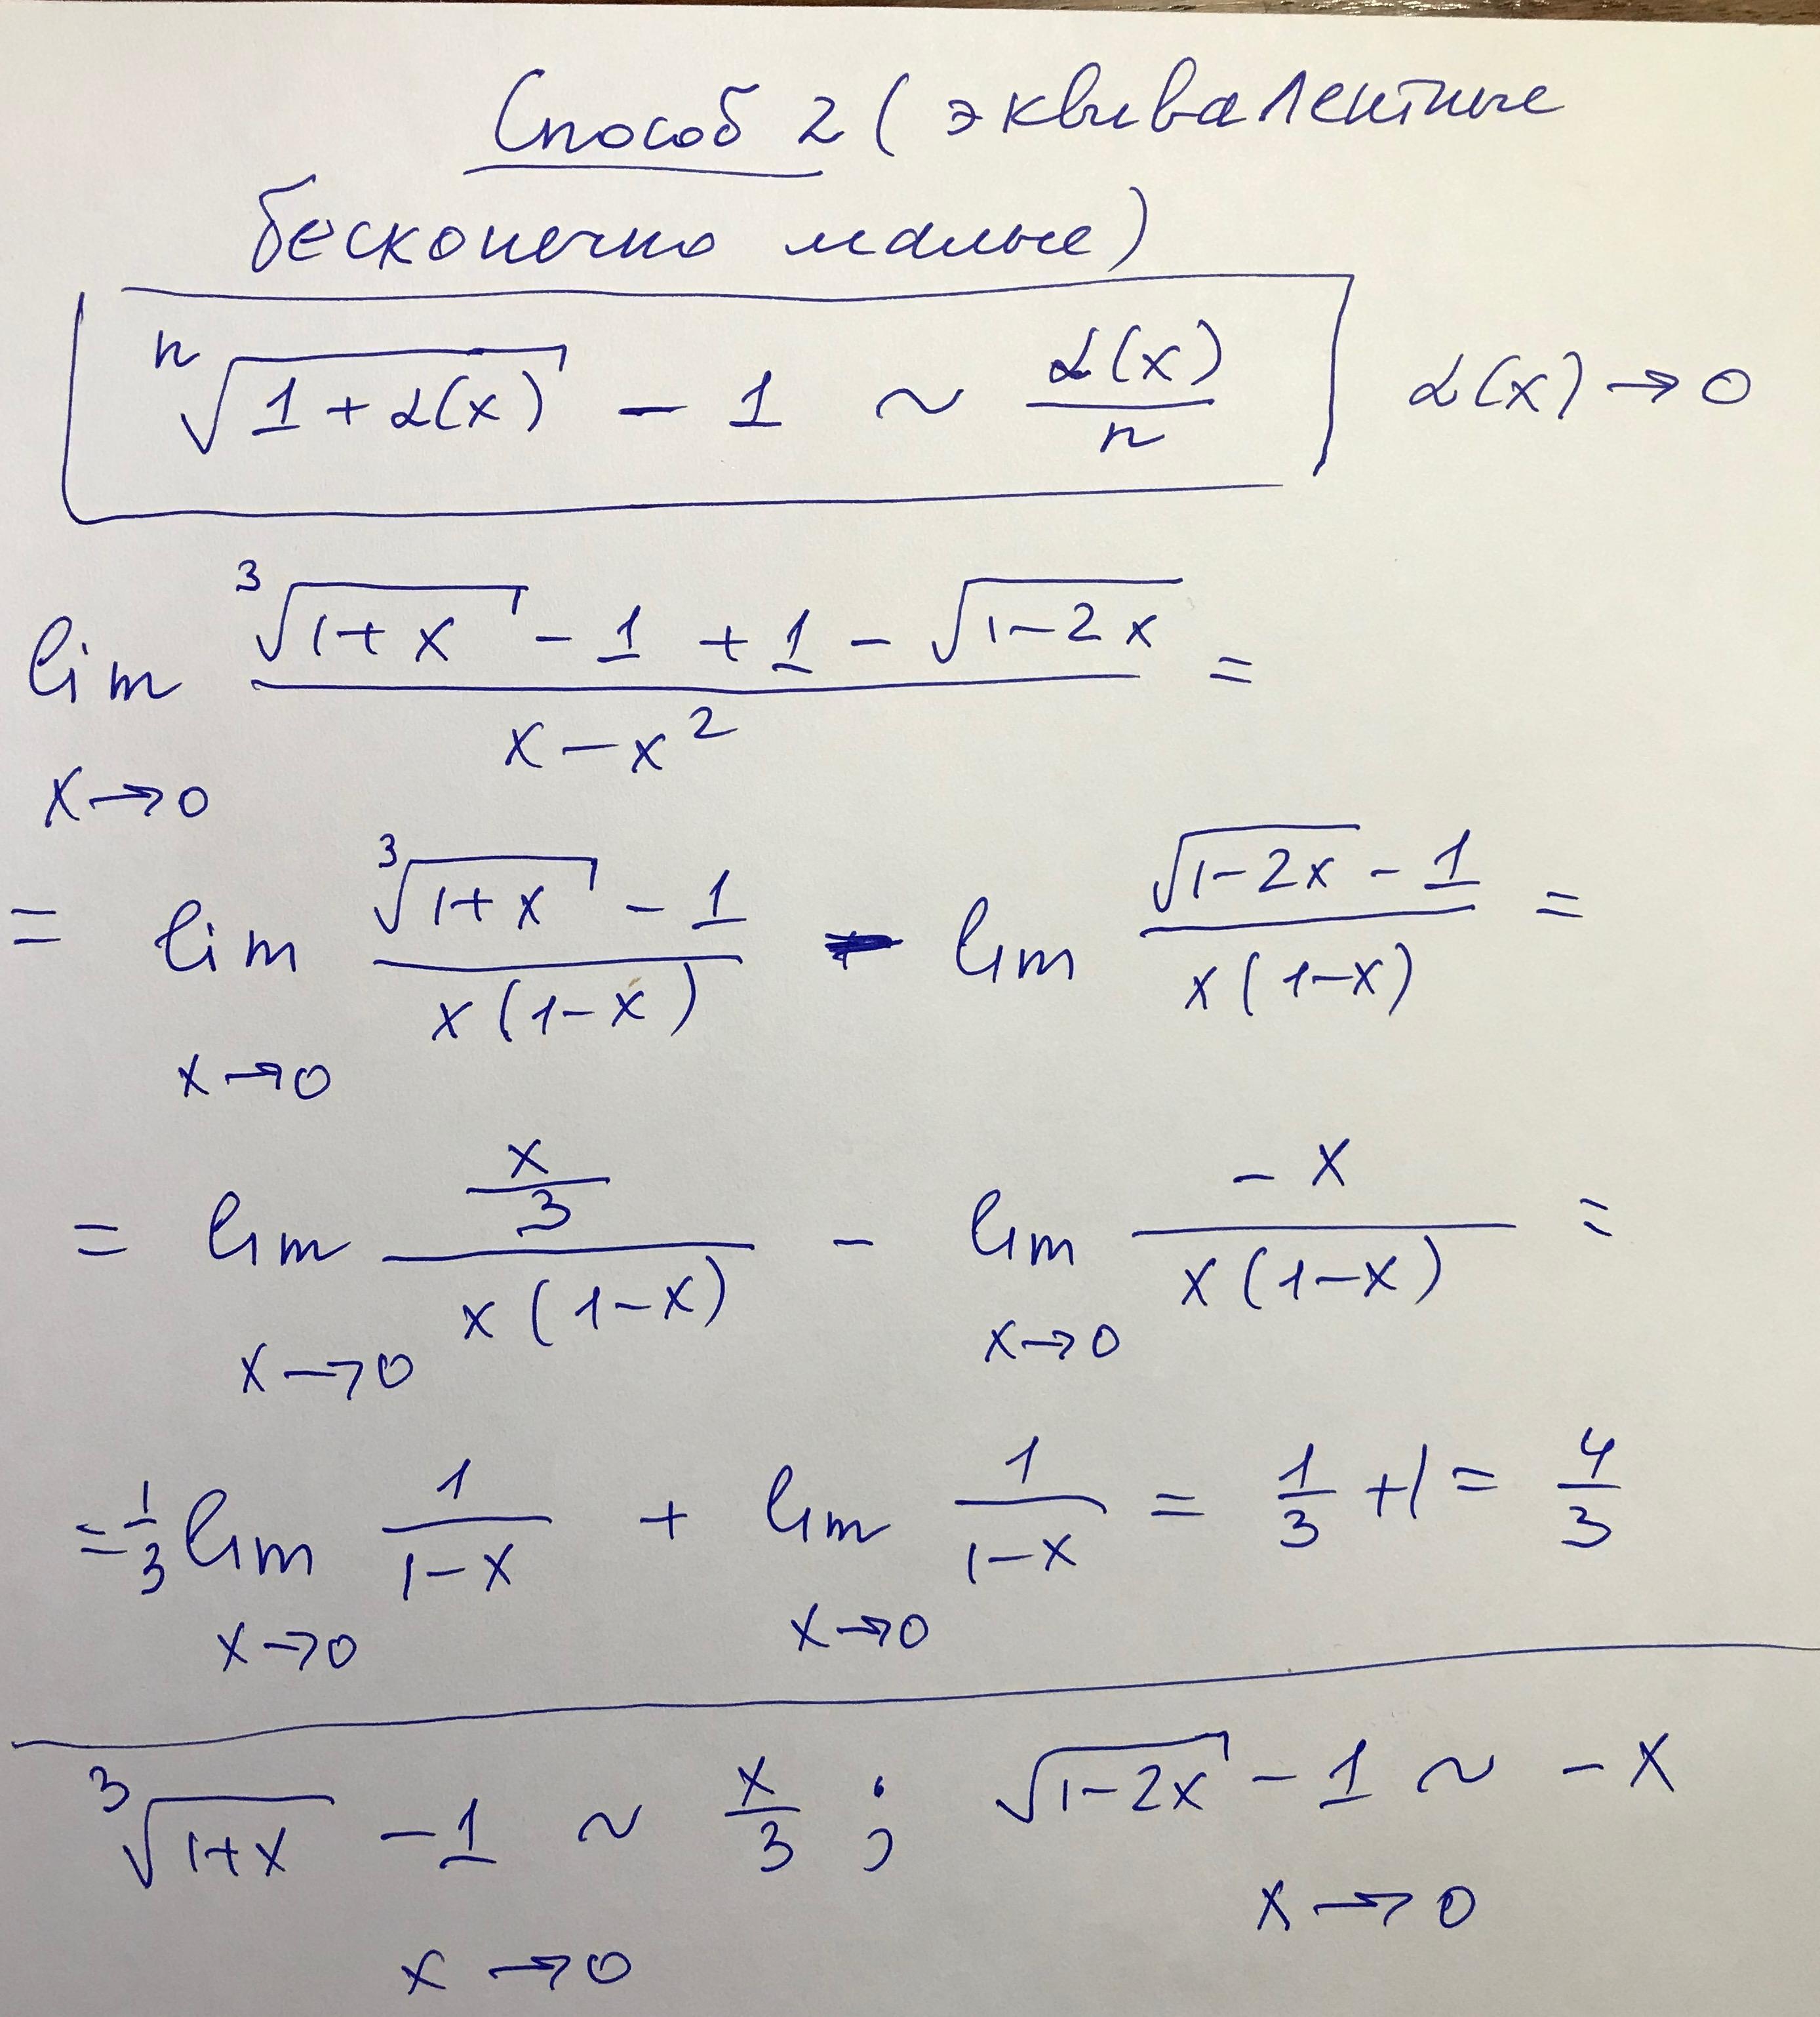 Способ 2 (эквивалентные
бесконечно малые)
ⁿ√(1+α(x)) − 1 ~ α(x)/n   α(x) → 0
lim x→0 (³√(1+x) − 1 + 1 − √(1−2x))/(x−x²) =
= lim x→0 (³√(1+x) − 1)/(x(1−x)) − lim (√(1−2x) − 1)/(x(1−x)) =
= lim x→0 (x/3)/(x(1−x)) − lim x→0 (−x)/(x(1−x)) =
= 1/3 lim x→0 1/(1−x) + lim x→0 1/(1−x) = 1/3 + 1 = 4/3
³√(1+x) − 1 ~ x/3 ; √(1−2x) − 1 ~ −x
x→0   x→0